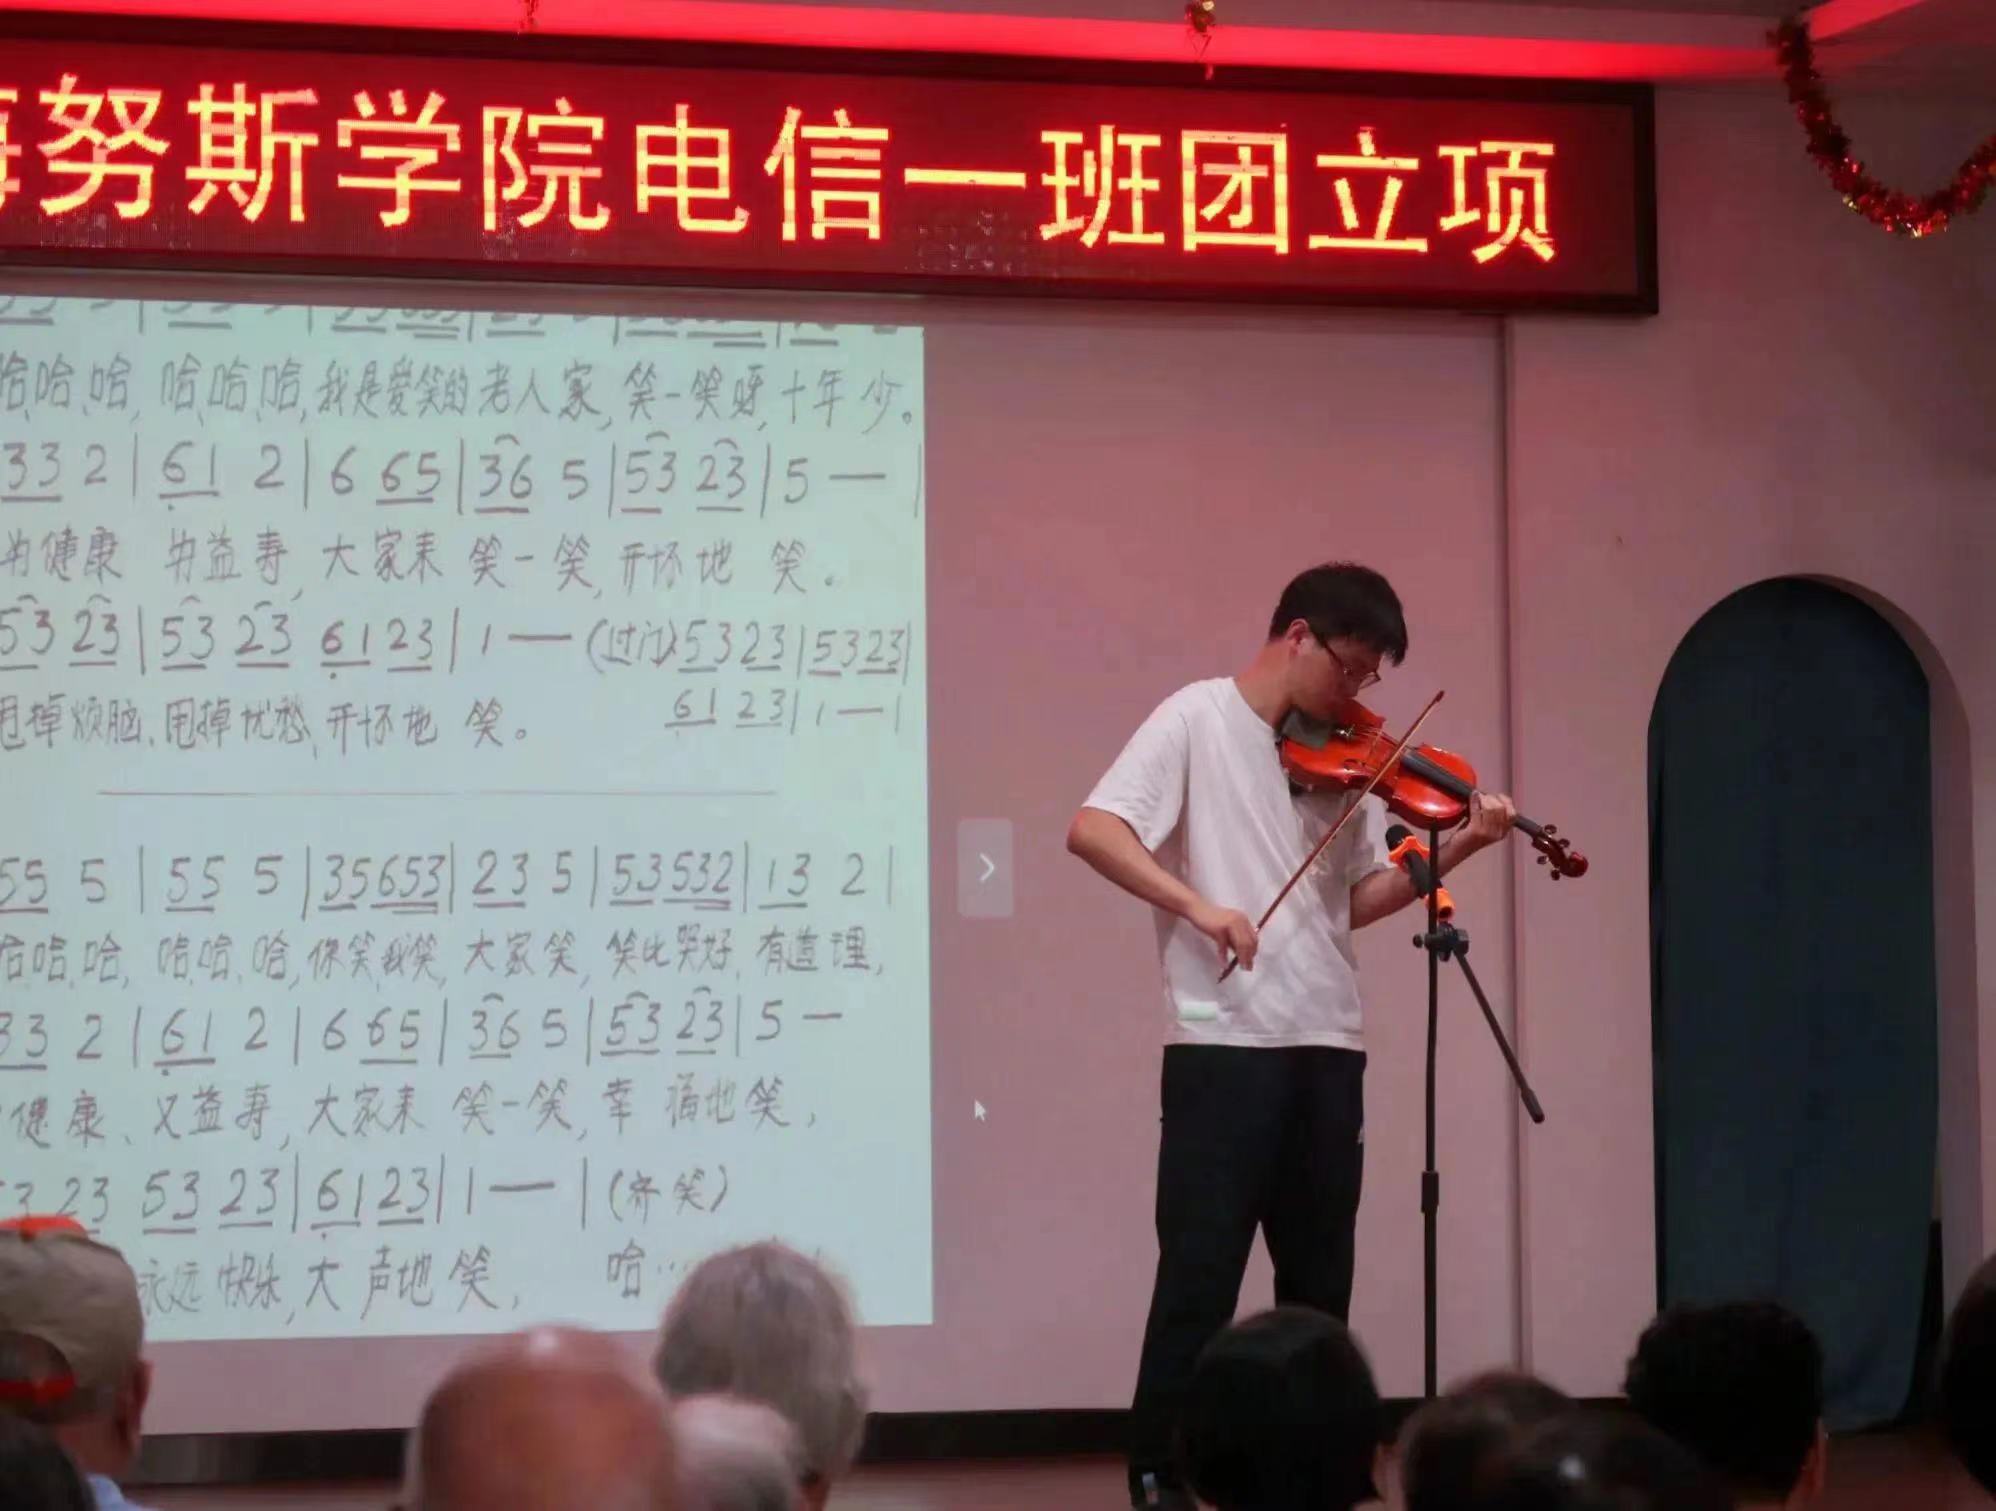 海努斯学院电信一班团立项
哈、哈、哈, 哈、哈、哈, 我是爱笑的老人家, 笑一笑呀, 十年少。
33 2 | 61 2 | 6 65 | 36 5 | 53 23 | 5 — |
为健康 为益寿, 大家来 笑一笑, 开怀地 笑。
53 23 | 53 23 61 23 | 1 — (过门) 53 23 | 53 23 |
61 23 | 1 — |
甩掉烦脑、甩掉忧愁, 开怀地 笑。
55 5 | 55 5 | 35653 | 23 5 | 53532 | 13 2 |
哈、哈、哈, 哈、哈、哈, 你笑我笑, 大家笑, 笑比哭好, 有道理,
33 2 | 61 2 | 6 65 | 36 5 | 53 23 | 5 —
健康、又益寿, 大家来 笑一笑, 幸福地笑,
53 23 53 23 | 61 23 | 1 — | (齐笑)
永远快乐, 大声地笑, 哈……